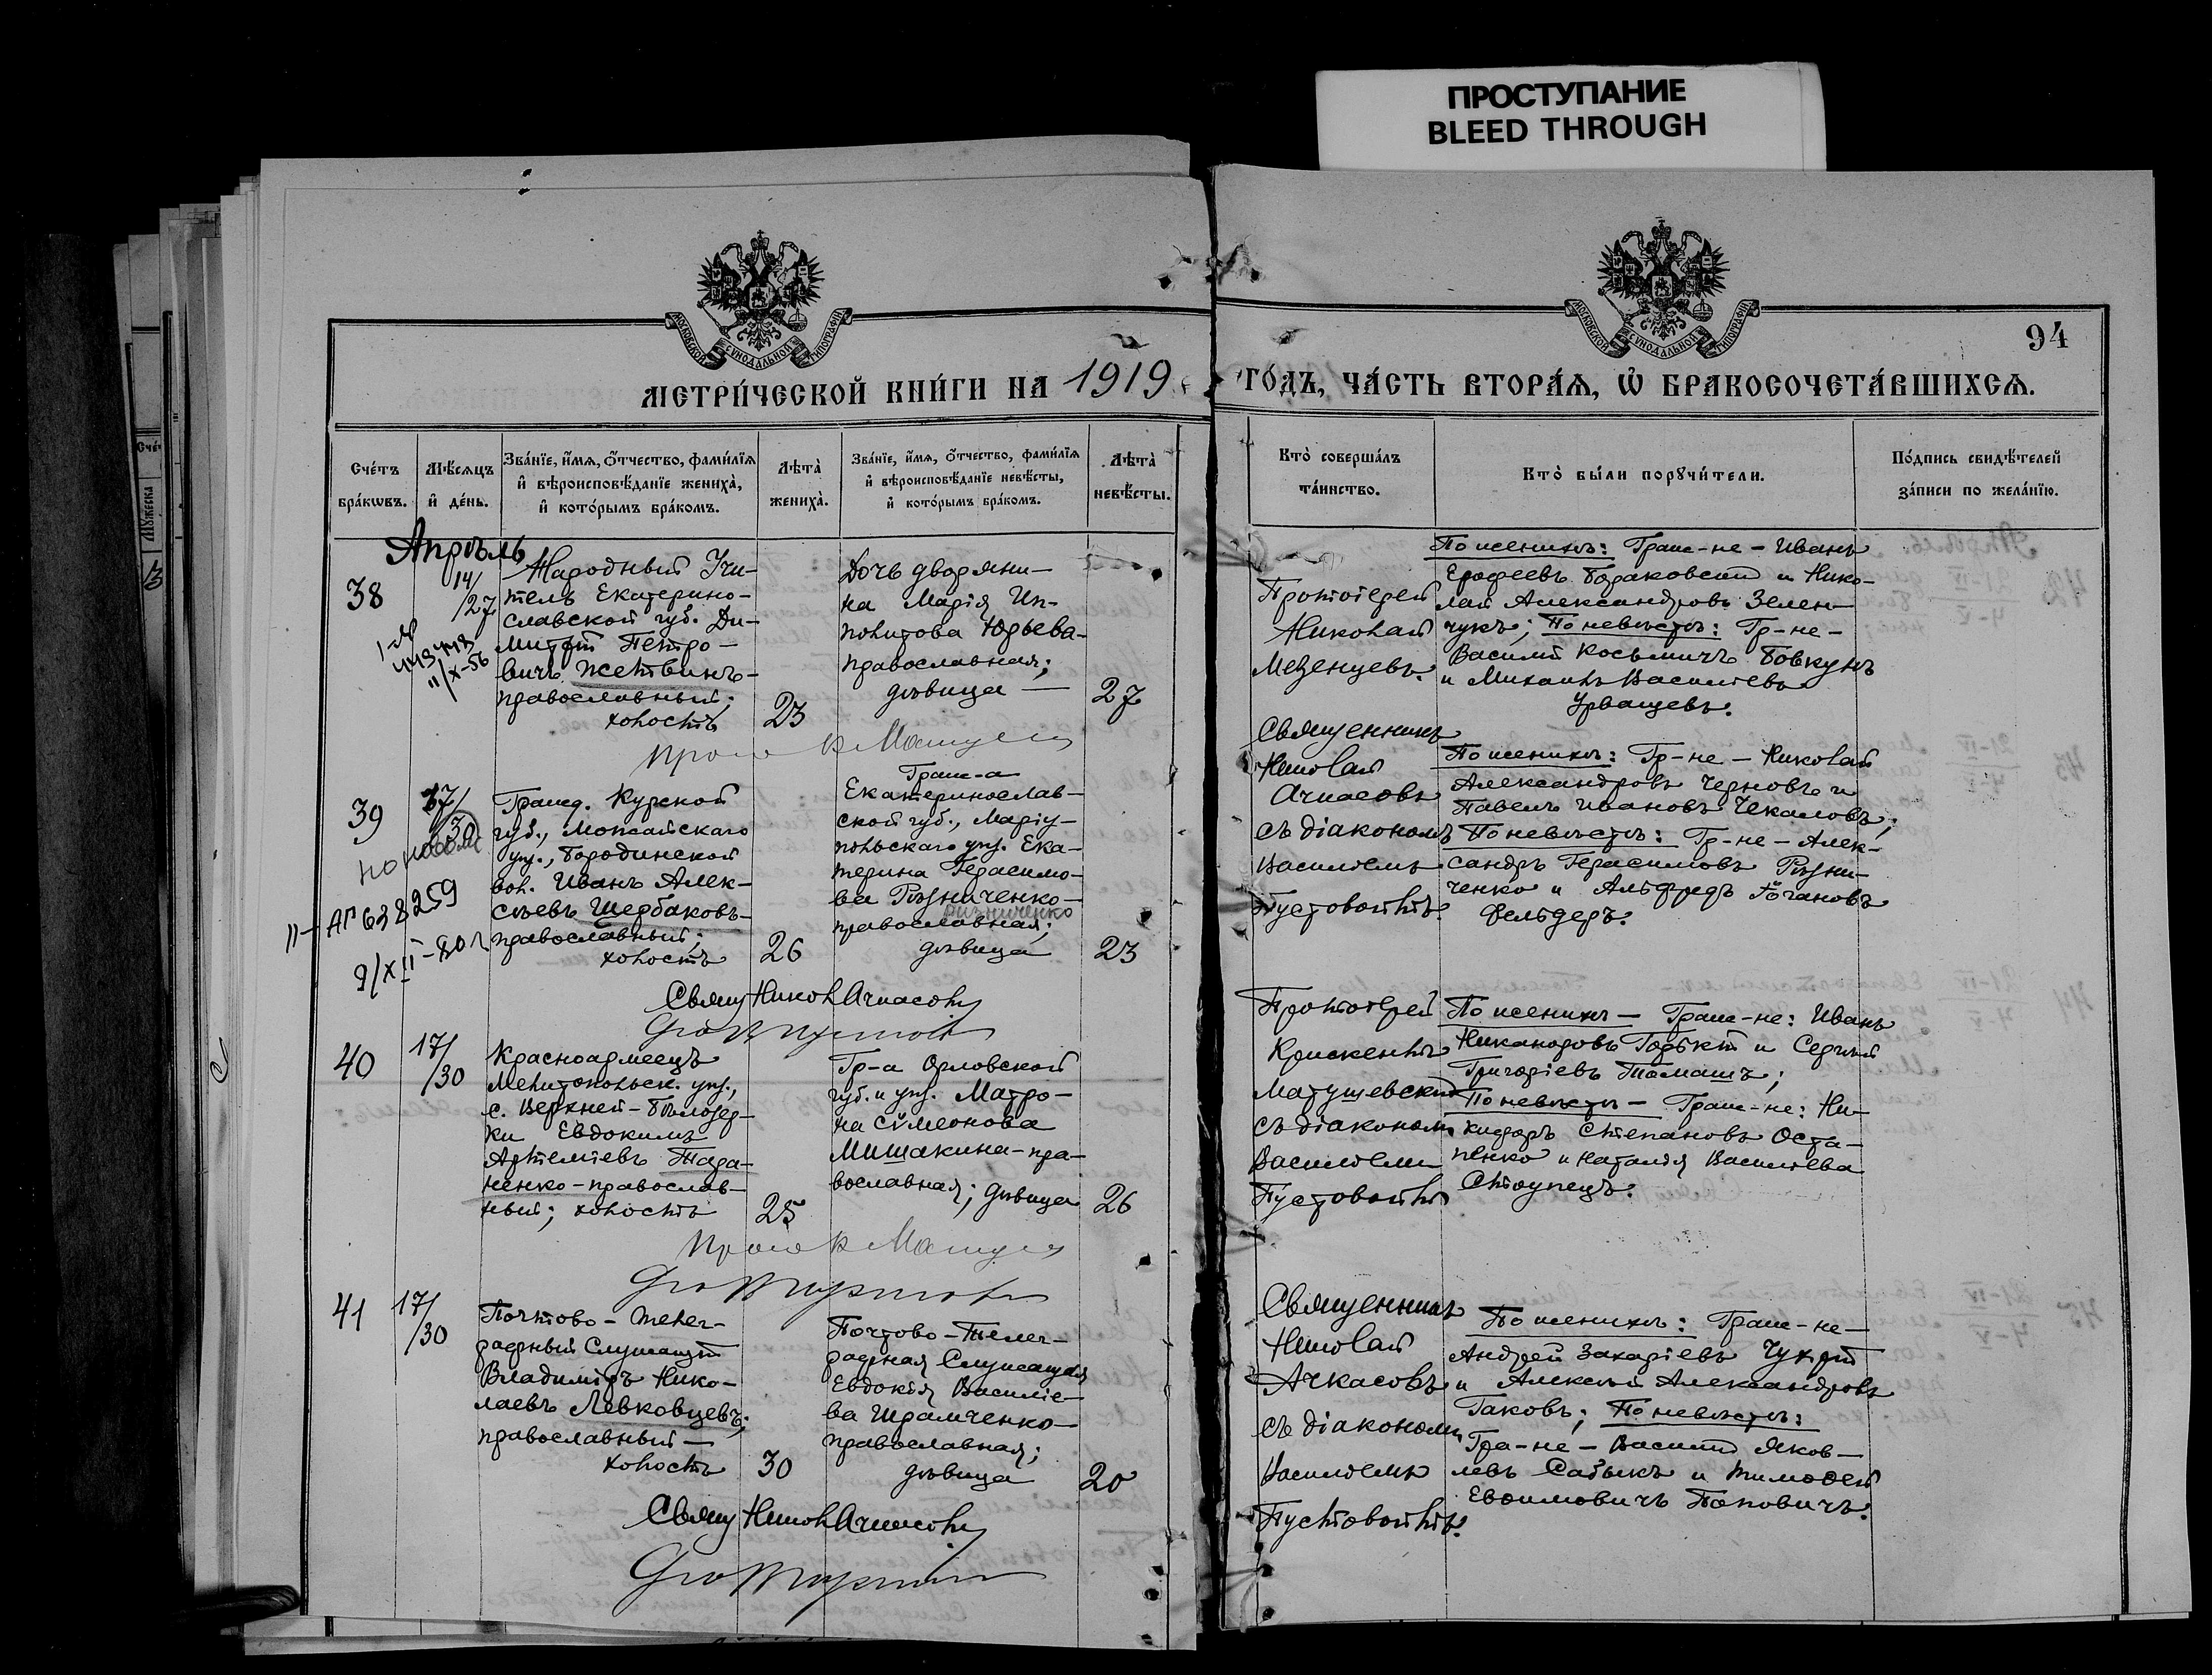 ПРОСТУПАНИЕ
BLEED THROUGH
МОСКОВСКОЙ СѴНОДАЛЬНОЙ ТИПОГРАФІИ
МОСКОВСКОЙ СѴНОДАЛЬНОЙ ТИПОГРАФІИ
94
МЕТРИ́ЧЕСКОЙ КНИ́ГИ НА 1919
ГО́ДЪ, ЧА́СТЬ ВТОРА́Ѧ, Ѽ БРАКОСОЧЕТА́ВШИХСѦ.
Сче́тъ бра́кѡвъ.
Мѣ́сѧцъ и҆ де́нь.
Зва́нїе, и҆́мѧ, ѻ҆́тчество, фами́лїѧ
и҆ вѣроисповѣ́данїе жениха̀,
и҆ кото́рымъ бра́комъ.
Лѣта̀ жениха̀.
Зва́нїе, и҆́мѧ, ѻ҆́тчество, фами́лїѧ
и҆ вѣроисповѣ́данїе невѣ́сты,
и҆ кото́рымъ бра́комъ.
Лѣта̀ невѣ́сты.
Кто̀ соверша́лъ
та́инство.
Кто̀ бы́ли порꙋчи́тели.
По́дпись свидѣ́телей
за́писи по жела́нїю.
Апрѣль
38
14/
/27
11/X-56
Народный Учи-
тель Екатерино-
славской губ. Ди-
митрій Петро-
вичъ Жетвинъ-
православный;
холостъ
23
Дочь дворяни-
на Марія Ип-
политова Юрьева-
православная;
дѣвица —
27
Протоіерей
Николай
Мезенцевъ.
По женихѣ: Граж-не - Иванъ
Ерофеевъ Бораковскій и Нико-
лай Александровъ Зелен-
чукъ; По невѣстѣ: Гр-не -
Василій Косьмичъ Бовкунъ
и Михаилъ Василіевъ
Урващевъ.
39
17/
30
по новому
II-АГ 638259
9/XII-80г
Гражд. Курской
губ., Можайскаго
уѣз., Бородинской
вол. Иванъ Алек-
сѣевъ Щербаковъ-
православный;
холостъ
26
Граж-а
Екатеринослав-
ской губ., Маріу-
польскаго уѣз. Ека-
терина Герасимо-
ва Рѣзниченко-
ризниченко
православная;
дѣвица
23
Священникъ
Николай
Ачкасовъ
съ діакономъ
Василіемъ
Пустовойтъ.
По женихѣ: Гр-не - Николай
Александровъ Черновъ и
Павелъ Ивановъ Чекаловъ;
По невѣстѣ: Гр-не - Алек-
сандръ Герасимовъ Рѣзни-
ченко и Альфредъ
Фельдеръ.
40
17/
/30
Красноармеецъ
Мелитопольск. уѣз.,
с. Верхней-Бѣлозер-
ки Евдокимъ
Артеміевъ Тара-
ненко-православ-
ный; холостъ
25
Гр-а Орловской
губ. и уѣз. Матро-
на Сѵмеонова
Мишакина-пра-
вославная; дѣвица
26
Протоіерей
Крискентъ
Матушевскій
съ діакономъ
Василіемъ
Пустовойтъ
По женихѣ - Граж-не: Иванъ
Никаноровъ Горькій и Сергій
Григоріевъ Томашъ;
По невѣстѣ - Граж-не: Ни-
кифоръ Степановъ Оста-
пенко и Наталія Василіева
Стоупецъ.
41
17/
/30
Почтово-телег-
рафный Служащій
Владиміръ Нико-
лаевъ Левковцевъ;
православный -
холостъ
30
Почтово-Телег-
рафная Служащая
Евдокія Василіе-
ва Шрамченко-
православная;
дѣвица
20
Священникъ
Николай
Ачкасовъ
съ діакономъ
Василіемъ
Пустовойтъ.
По женихѣ: Граж-не -
Андрей Захаріевъ Чухрій
и Алексѣй Александровъ
Гаковъ; По невѣстѣ:
Гра-не - Василій Яков-
левъ Сабыкъ и Тимоѳей
Евѳимовичъ Поповичъ.